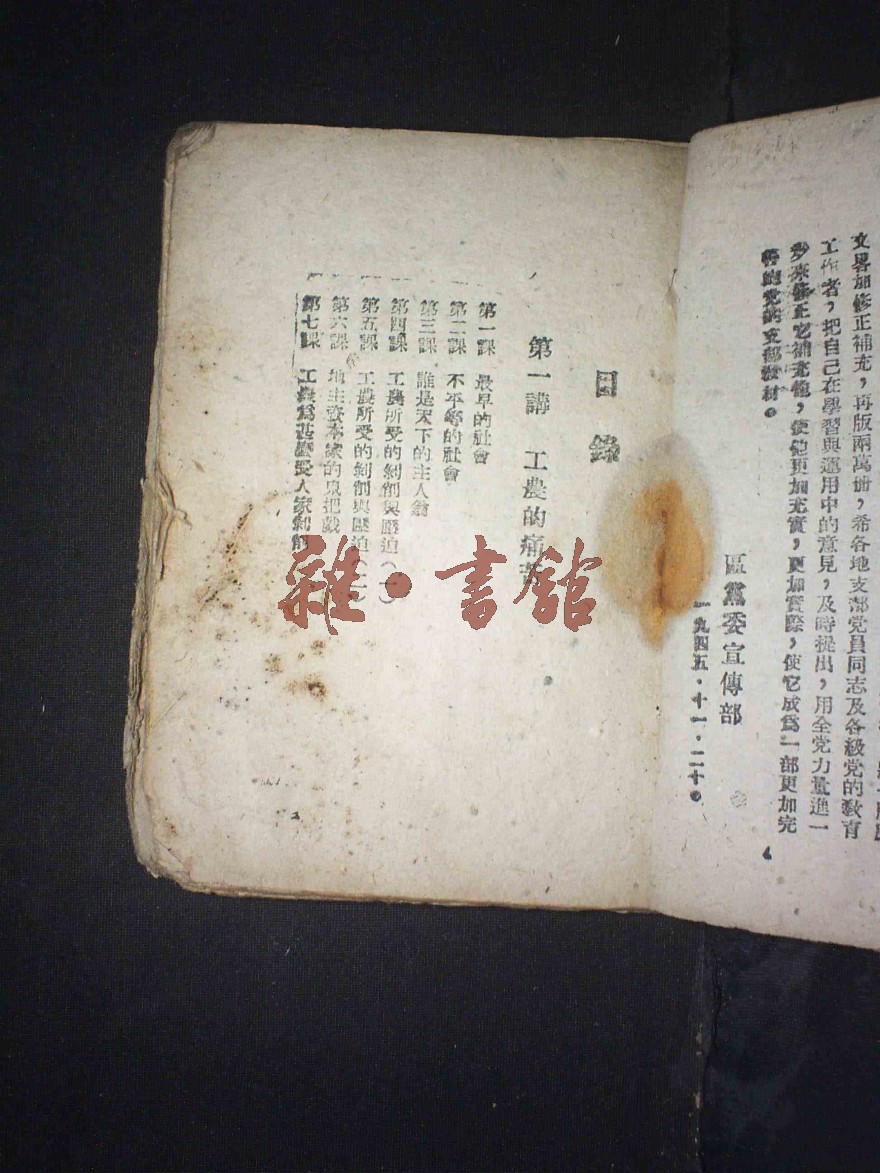 文畧加修正補充，再版兩萬册，希各地支部党員同志及各級党的敎育
工作者，把自己在學習與運用中的意見，及時提出，用全党力量進一
步來修正它補充牠，使牠更加充實，更加實際，使它成爲一部更加完
善的党的支部敎材。
區黨委宣傳部
一九四五·十一·二十。
目錄
第一講 工農的痛苦
第一課 最早的社會
第二課 不平等的社會
第三課 誰是天下的主人翁
第四課 工農所受的剝削與壓迫（一）
第五課 工農所受的剝削與壓迫（二）
第六課 地主資本家的鬼把戲
第七課 工農爲甚麼受人家剝削
雜·書館